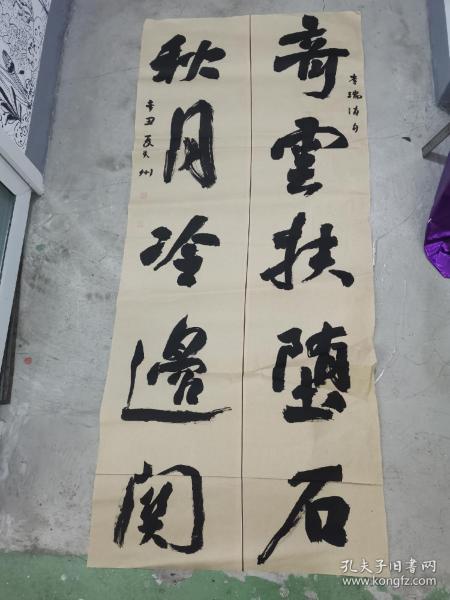 奇雲扶堕石
李瑞清句
秋月冷邊関
辛丑夏天州
孔夫子旧书网
www.kongfz.com